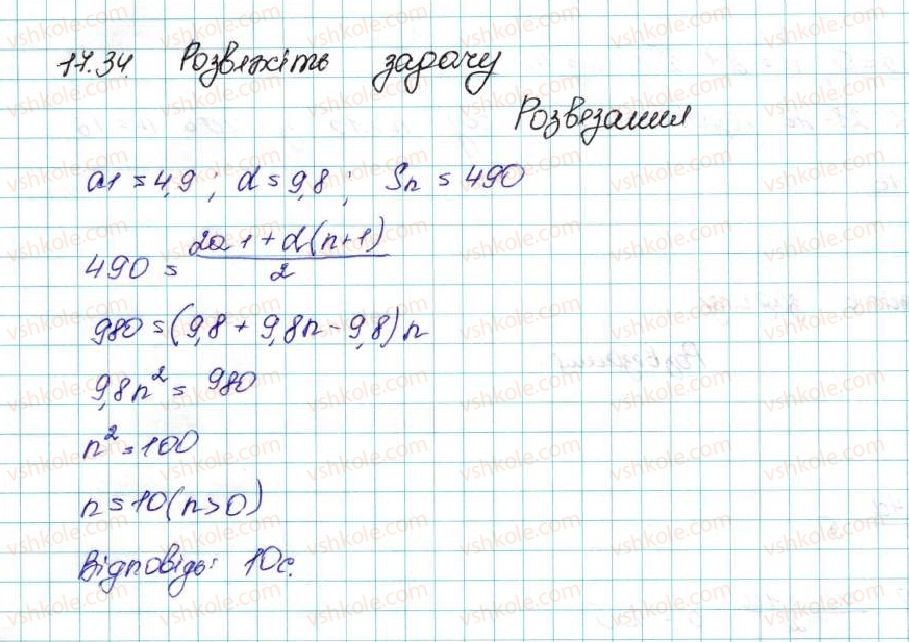 17.34. Розвяжіть задачу
Розвезання
a1 = 4,9; d = 9,8; Sn = 490
490 = (2a1 + d(n+1))/2
980 = (9,8 + 9,8n - 9,8)n
9,8n² = 980
n² = 100
n = 10 (n>0)
Відповідь: 10с.